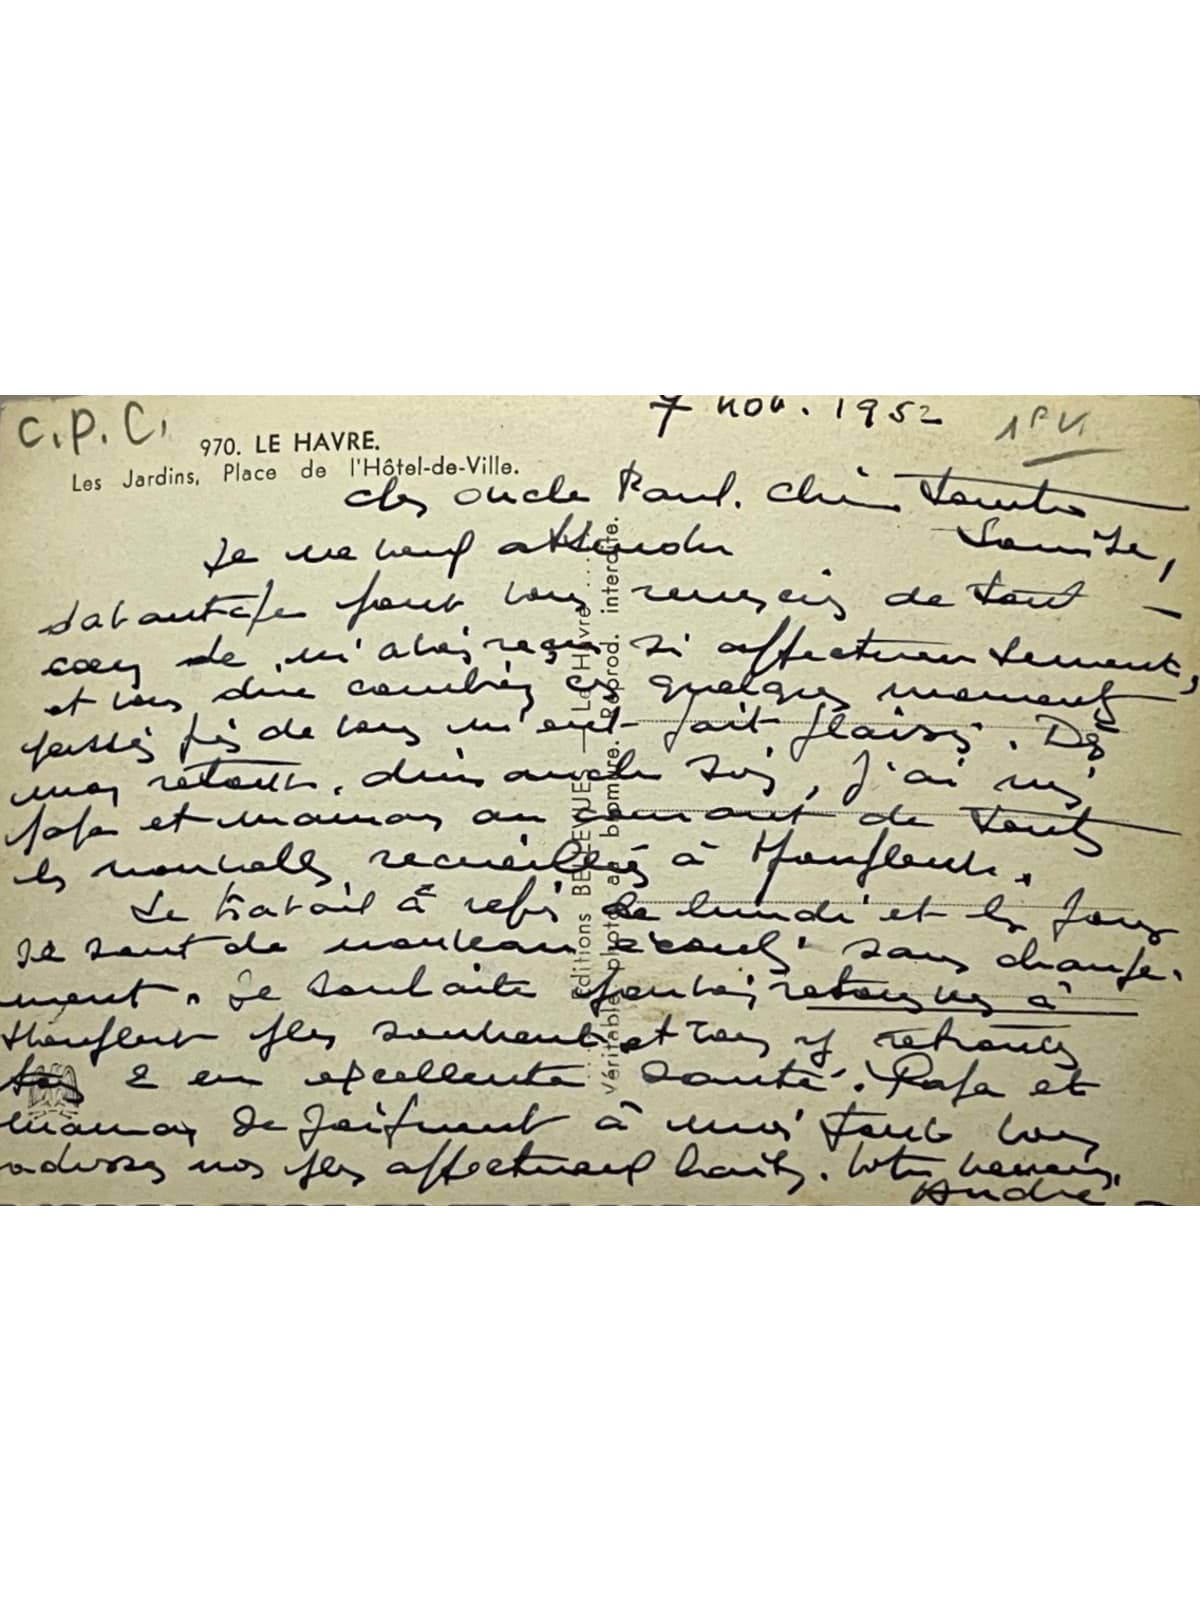 7 nov. 1952
C.P.C.
970. LE HAVRE.
Les Jardins, Place de l'Hôtel-de-Ville.
cher oncle Paul. chère Tante
Je ne veux attendre
davantage pour vous remercier de tout
cœur de m'avoir reçu si affectueusement,
et vous dire combien ces quelques moments
passés près de vous m'ont fait plaisir. Dès
mon retour, dimanche soir, j'ai mis
papa et maman au courant de toutes
les nouvelles recueillies à Honfleur.
Le travail a repris lundi et les jours
se sont de nouveau écoulés sans change-
ment. Je souhaite pouvoir retourner à
Honfleur plus souvent et vous y retrouver
2 en excellente santé. Papa et
maman se joignent à moi pour vous
adresser nos plus affectueux baisers. Votre neveu,
André
Editions BELLEVUE — Le Havre
Véritable photo au bromure. Reprod. interdite.